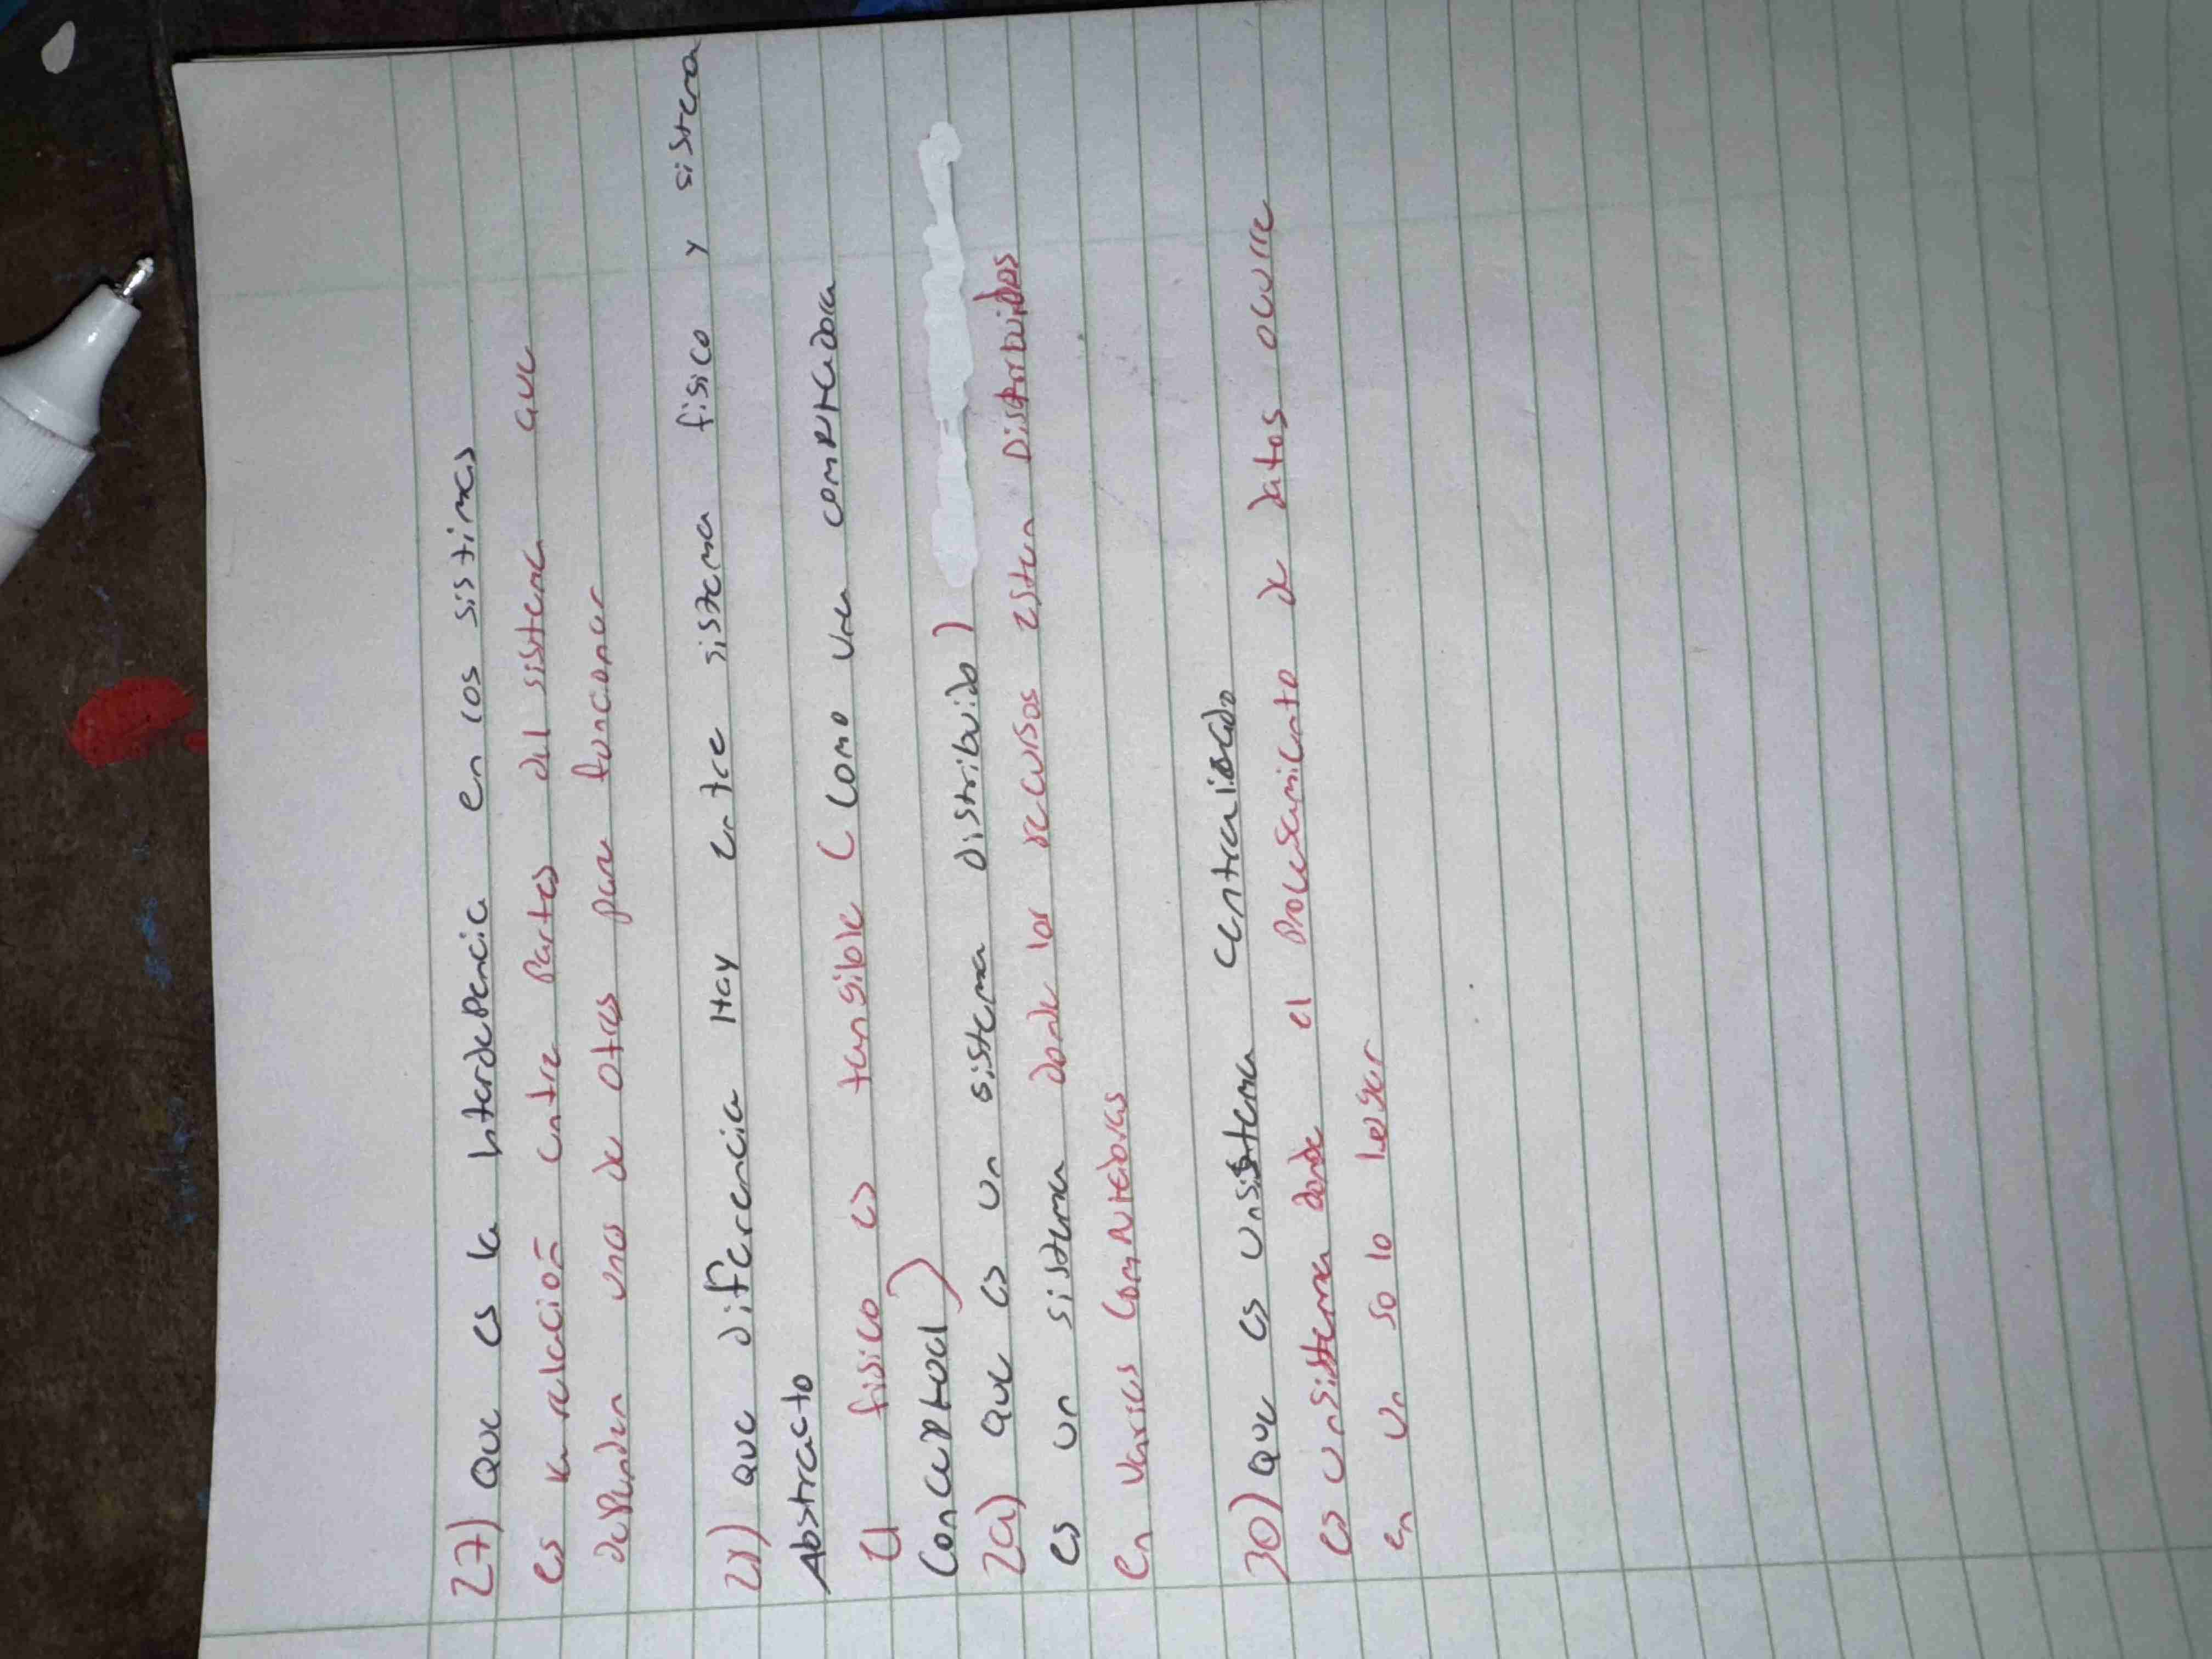 27) Que es la Interdepencia en los sistimas
es la relación entre Partes del sistema que
dePenden unas de otras para funconar
28) que diferencia Hay entre sistema fisico y sistema
Abstracto
El fisico es tangible ( como una computadora
Conceptual )
29) que es un sistema distribuido )
es un sistema donde los recursos esten Distribuidos
en varias Computadoras
30) que es un sistema centralizado
es un sistema donde el Procesamiento de datos ocurre
en un so lo lugar